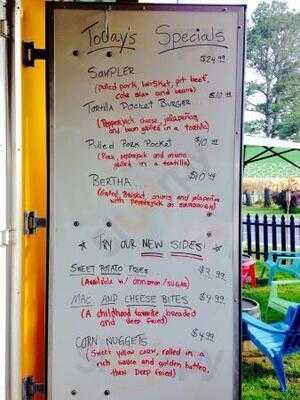 Today's Specials
$24.99
SAMPLER
(pulled pork, brisket, pit beef,
cole slaw and beans)
TORTILLA POCKET BURGER $10.99
(Pepperjack cheese, jalapeños
and bacon grilled in a tortilla)
Pulled Pork Pocket $10.99
(Pork, pepperjack and
grilled in a tortilla)
BERTHA $10.99
(Brisket, onions and jalapeño
with pepperjack on sourdough)
TRY OUR NEW SIDES!
SWEET POTATO FRIES $3.99
(Available w/ cinnamon/sugar)
MAC AND CHEESE BITES $4.99
(A childhood favorite, breaded
and deep fried)
CORN NUGGETS $4.99
(Sweet yellow corn, rolled in a
rich sauce and golden batter,
then Deep fried)